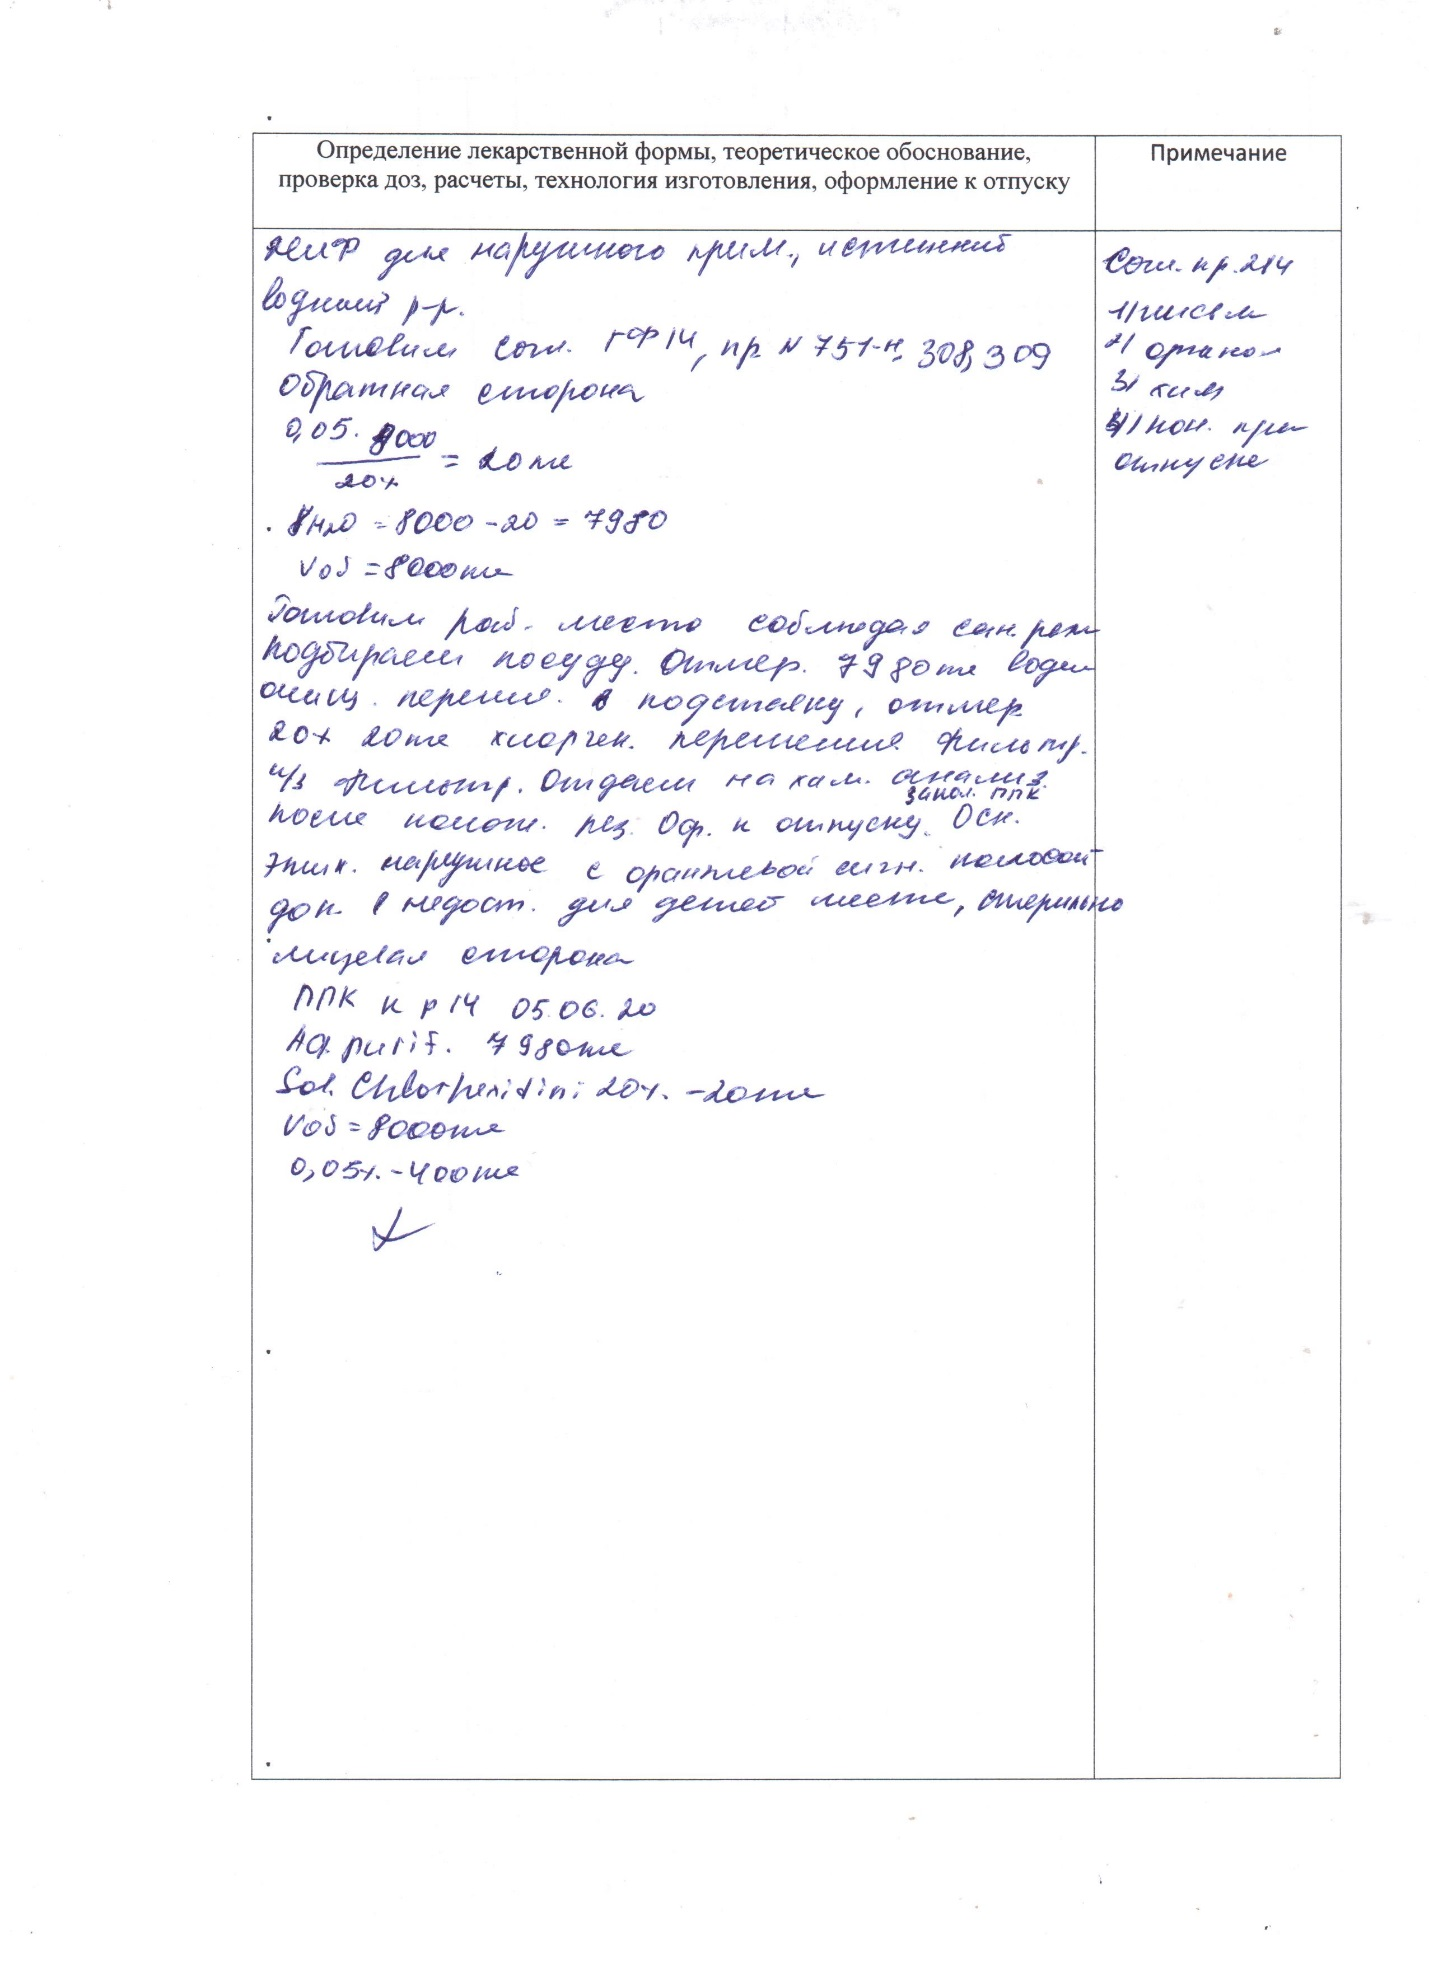 Определение лекарственной формы, теоретическое обоснование,
проверка доз, расчеты, технология изготовления, оформление к отпуску
Примечание
ЖЛФ для наружного прим., истинный
водный р-р.
Готовим согл. ГФ 14, пр. N 751-н, 308, 309
Обратная сторона
0,05 · 8000
= 20мл
20%
VH2O = 8000 - 20 = 7980
Vоб = 8000мл
Готовим раб. место соблюдая сан. реж
Подбираем посуду. Отмер. 7980мл воды
очищ. перелив. в подставку, отмер
20% 20мл хлорген. перемешив. Фильтр.
ч/з фильтр. Отдаем на хим. анализ.
запол. ППК
После полож. рез. Оф. к отпуску. Осн.
этик. наружное с оранжевой сигн. полосой
доп. в недост. для детей месте, стерильно
лицевая сторона
ППК к р 14 05.06.20
Aq. purif. 7980мл
Sol. Chlorhexidini 20% - 20мл
Vоб = 8000мл
0,05% - 400мл
Согл. пр. 214
1) письм
2) органол
3) хим
4) кон. при
отпуске